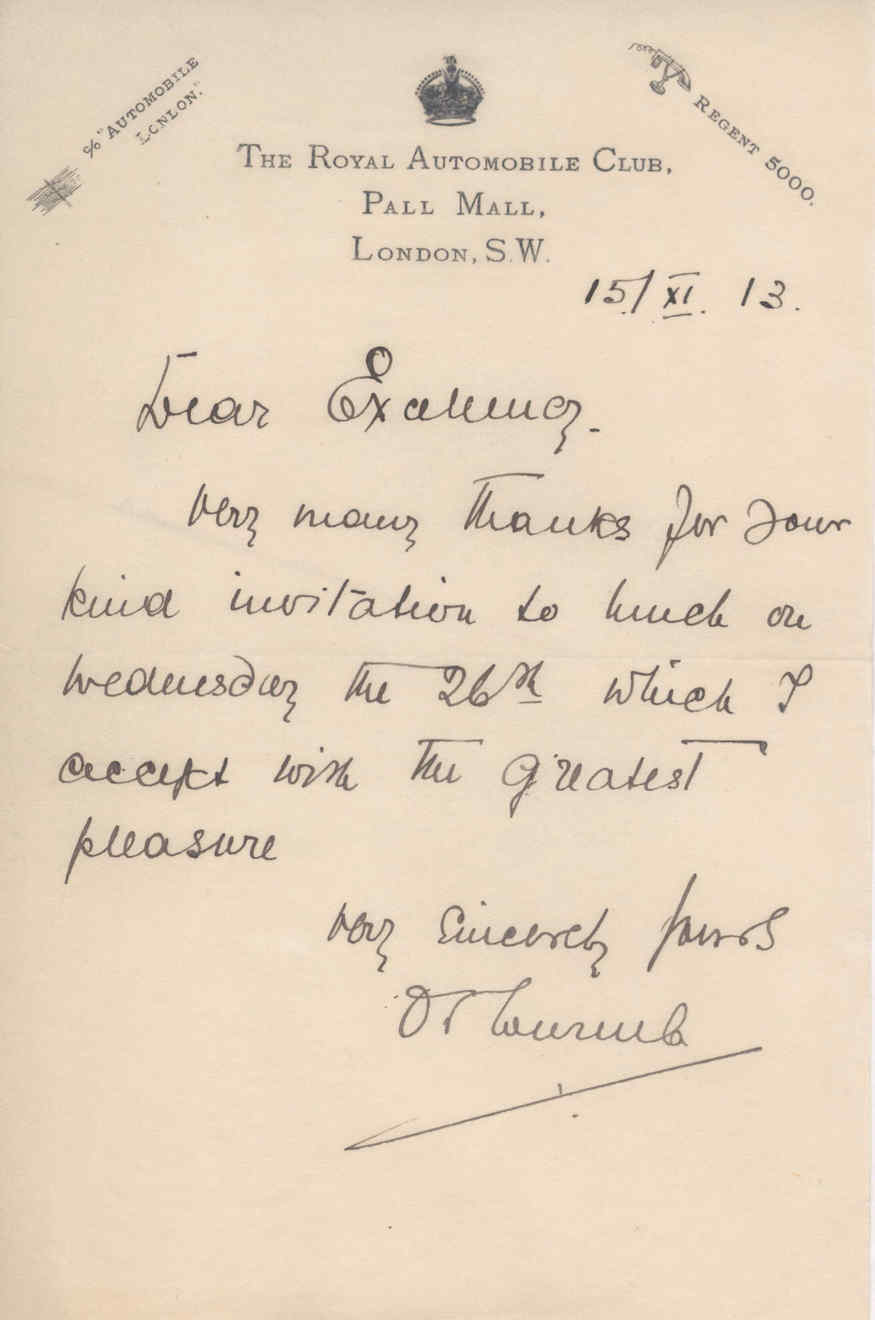 % "AUTOMOBILE
LONDON."
REGENT 5000.
THE ROYAL AUTOMOBILE CLUB,
PALL MALL,
LONDON, S.W.
15/XI. 13.
Dear Excellency.
Very many thanks for your
kind invitation to lunch on
Wednesday the 26th which I
accept with the greatest
pleasure
Very sincerely yours